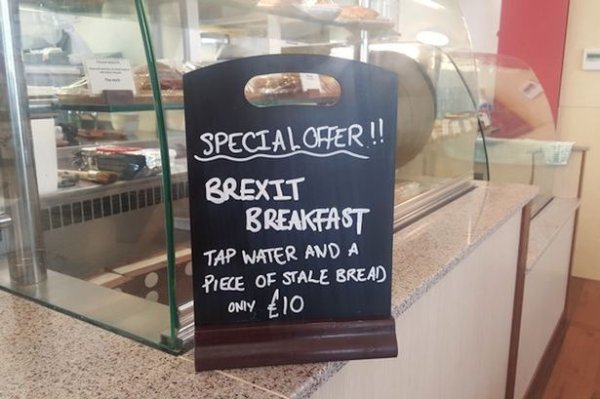 SPECIAL OFFER!!
BREXIT
BREAKFAST
TAP WATER AND A
PIECE OF STALE BREAD
ONLY £10